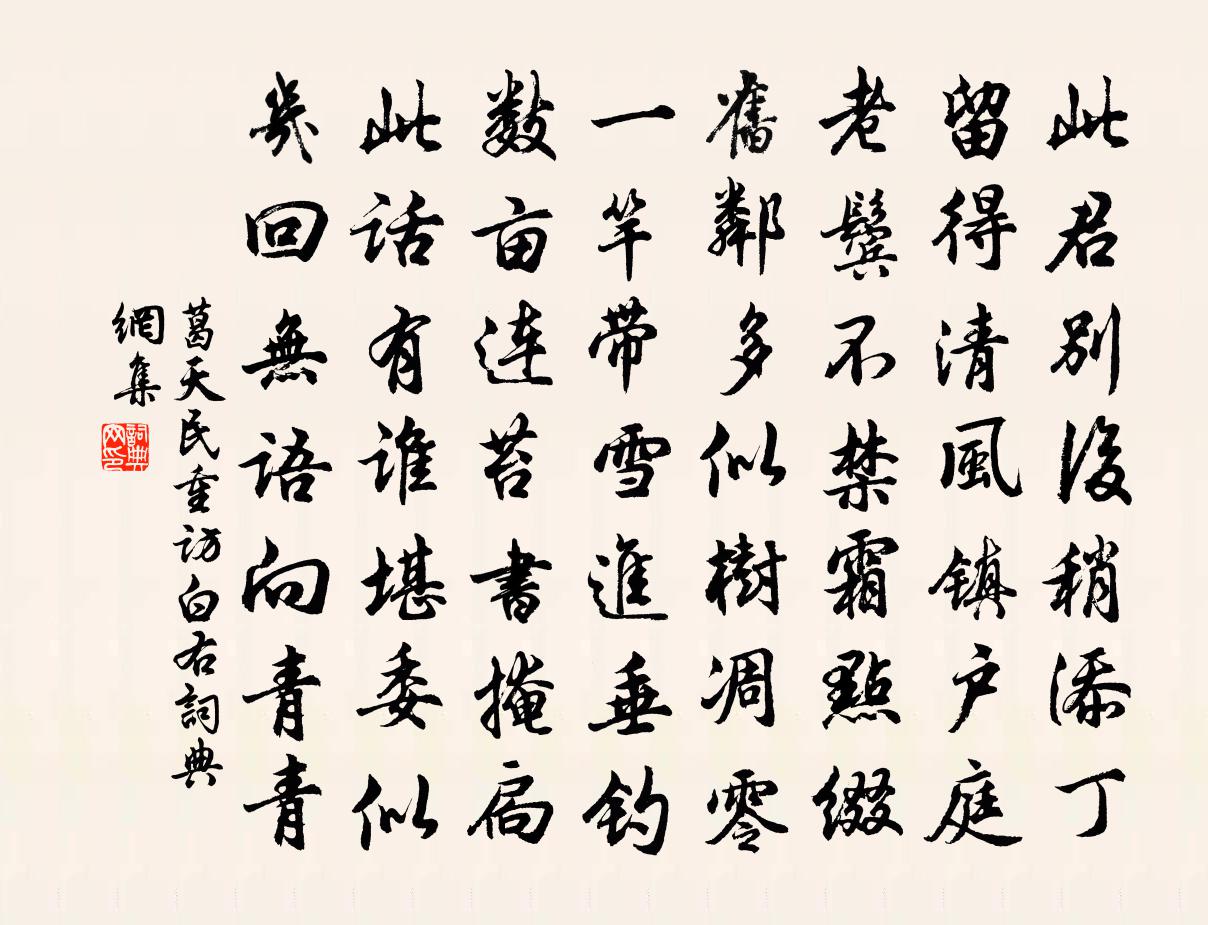 此君別後稍添丁
留得清風镇户庭
老鬓不禁霜點綴
舊鄰多似樹凋零
一竿带雪進垂钓
數亩连苔書掩扃
此话有谁堪委似
幾回無语向青青
葛天民重访白石詞典
網集
詞典网印